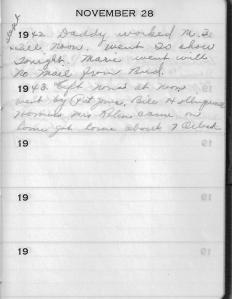 NOVEMBER 28
1942 Daddy worked M. I.
till noon. Went to show
tonight. Marie went with
No mail from Bud.
1943. Left home at noon
went by Pat Jones, Bill
came on
home got home about 7 O'clock
19
19
19